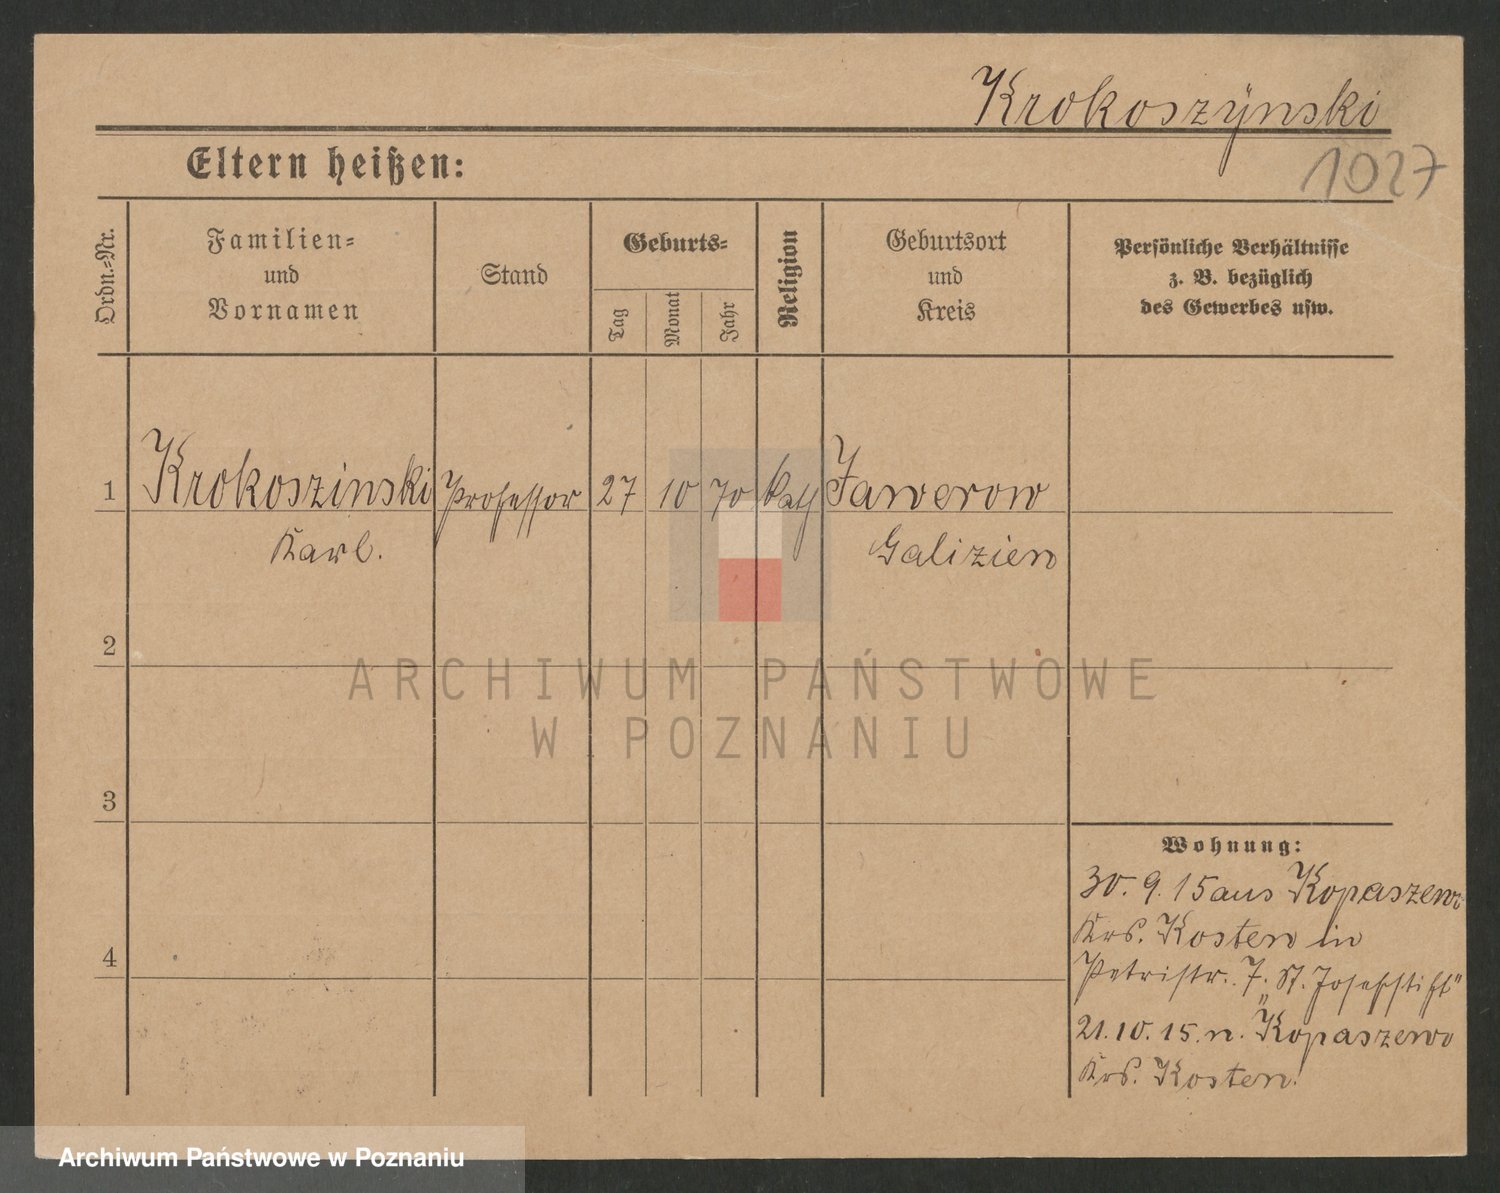 Krokoszÿnski
1027
Eltern heißen:
Ordn.-Nr.
Familien-
und
Vornamen
Stand
Geburts-
Tag
Monat
Jahr
Religion
Geburtsort
und
Kreis
Persönliche Verhältnisse
z. B. bezüglich
des Gewerbes usw.
1 Krokoszinski Professor 27 10 70 kath Jaworow
Karl. Galizien
2
3
4
Wohnung:
30. 9. 15 aus Kopaszewo
Krs. Kosten in
Petristr. 7. „St. Josefstift"
21. 10. 15. n. Kopaszewo
Krs. Kosten.
ARCHIWUM PAŃSTWOWE
W POZNANIU
Archiwum Państwowe w Poznaniu